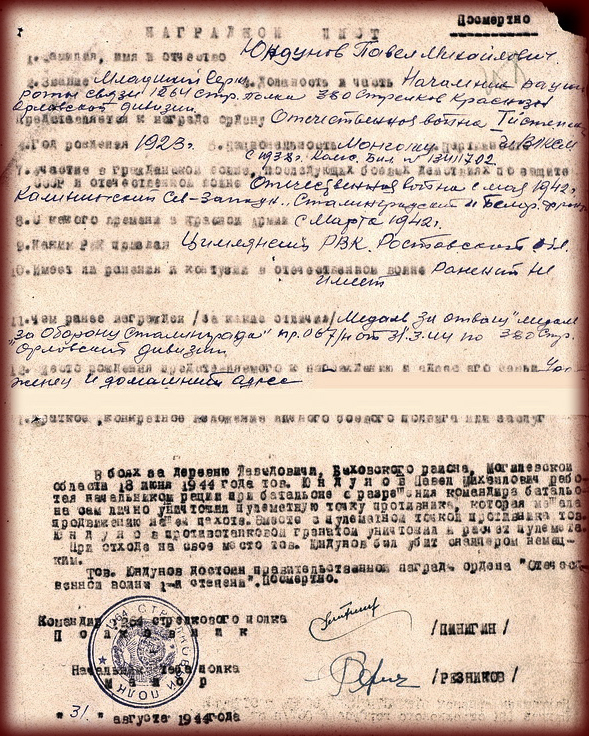 Посмертно
НАГРАДНОЙ ЛИСТ
1. Фамилия, имя и отчество Юндунов Павел Михайлович.
2. Звание Младший Серж. Должность и часть Начальник рации
роты связи 1264 Стр. полка 380 Стрелков Краснозн
Орловской дивизии
Представляется к награде ордену Отечественной войны I степени
4. Год рождения 1923 г. 5. Национальность Монгол 6. Партийность ВЛКСМ
с 1938 г. Комс. Бил. № 13411702
7. Участие в гражданской войне, последующих боевых действиях по защите
СССР и отечественной войне Отечественная война с мая 1942 г.
Калининский Сев-Запад., Сталинградский и Белор. фронт
8. С какого времени в Красной Армии с Марта 1942 г.
9. Каким РВК призван Цимлянский РВК. Ростовской обл.
10. Имеет ли ранения и контузии в отечественной войне Ранений не
имеет
11. Чем ранее награжден /за какие отличия/ Медаль За отвагу" медаль
"за Оборону Сталинграда" пр. 067/н от 31.3.44 по 380 Стр.
Орловской дивизии
12. Место рождения представляемого к награждению и адрес его семьи Уро-
женец и домашний адрес
1. Краткое, конкретное изложение личного боевого подвига или заслуг
В боях за деревню Давыдовичи, Быховского района, Могилевской
области 18 июня 1944 года тов. ЮНДУНОВ Павел Михайлович рабо-
тая начальником рации при батальоне с разрешения командира батальо-
на сам лично уничтожил пулеметную точку противника, которая мешала
продвижению нашей пехоте. Вместе с пулеметной точкой противника тов.
ЮНДУНОВ противотанковой гранатой уничтожил и расчет пулемета.
При отходе на свое место тов. Юндунов был убит снайпером немец-
ким.
Тов. Юндунов достоин правительственной награды ордена "Отечест-
венной войны 1-й степени". Посмертно.
Командир 1264 стрелкового полка
Полковник /ПИНИГИН/
Начальник штаба полка
майор /РЕЗНИКОВ/
"31." августа 1944 года